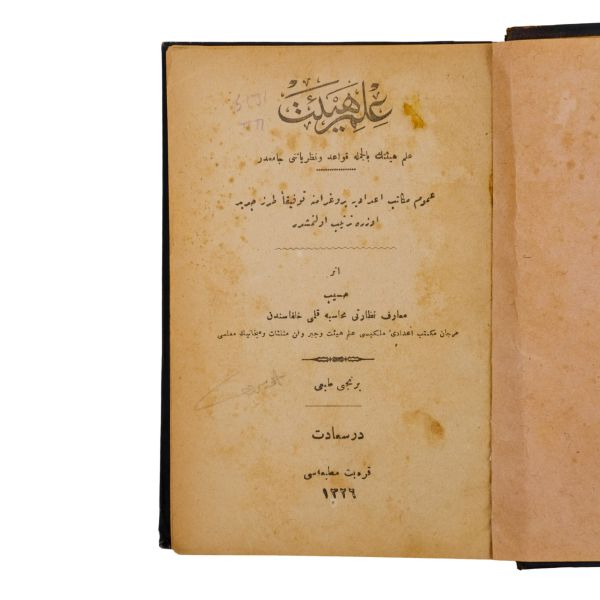 علم هيئت
علم هيئتك بالجمله قواعد و نظرياتنى جامعدر
عموم مكاتب اعداديه پروغرامنه توفيقاً طرز جديد
اوزره ترتيب اولنمشدر
اثر
حسيب
معارف نظارتى محاسبه قلمى خلفاسندن
مرجان مكتب اعدادئ ملكيسى علم هيئت وجبر وفن مثلثات وميخانيك معلمى
برنجى طبعى
درسعادت
قره بت مطبعه‌سى
١٣٢٦